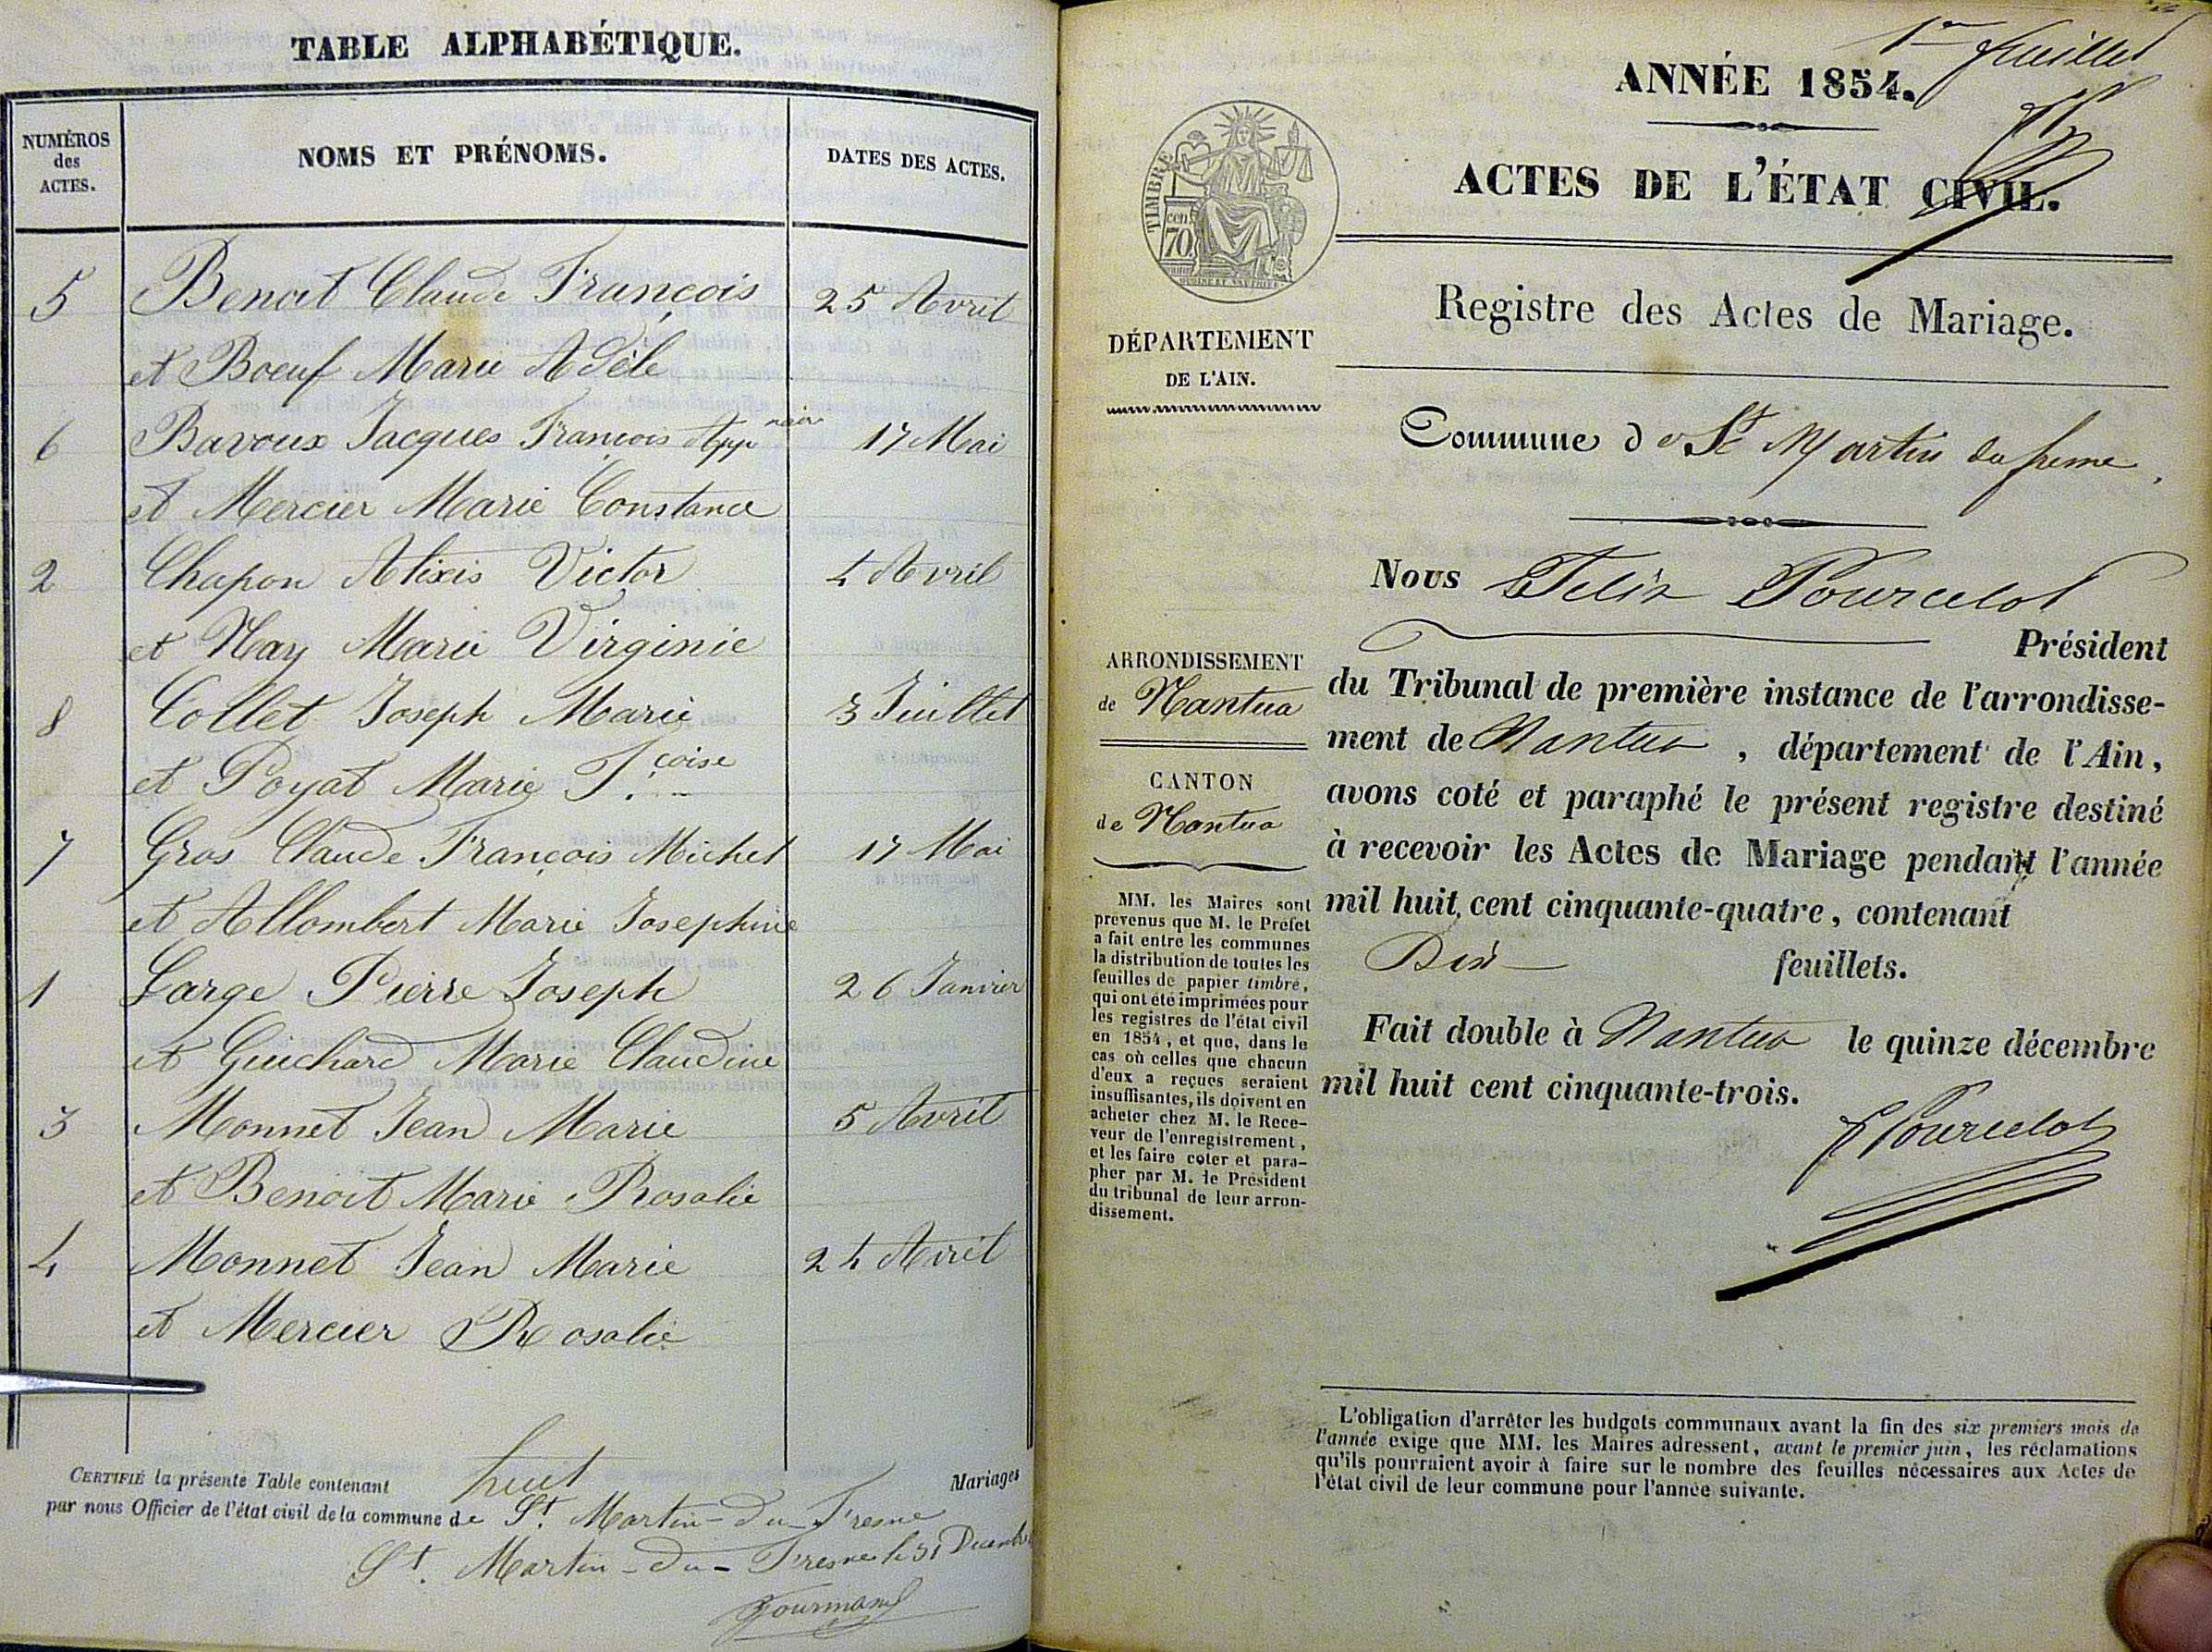 TABLE ALPHABÉTIQUE.
NUMÉROS
des
ACTES.
NOMS ET PRÉNOMS.
DATES DES ACTES.
5 Benoit Claude François 25 Avril
et Boeuf Marie Adèle
6 Bavoux Jacques François App naire 17 Mai
et Mercier Marie Constance
2 Chapon Alixis Victor 4 Avril
et Nay Marie Virginie
8 Collet Joseph Marie 3 Juillet
et Poyat Marie F.çoise
7 Gros Claude François Michel 17 Mai
et Allombert Marie Josephine
1 Large Pierre Joseph 26 Janvier
et Guichard Marie Claudine
3 Monnet Jean Marie 5 Avril
et Benoit Marie Rosalie
4 Monnet Jean Marie 24 Avril
et Mercier Rosalie
CERTIFIÉ la présente Table contenant huit Mariages
par nous Officier de l'état civil de la commune de St. Martin-du-Fresne
St. Martin-du-Fresne le 31 Decembre
1er feuillet
ANNÉE 1854.
ACTES DE L'ÉTAT CIVIL.
TIMBRE
cen.
70
Registre des Actes de Mariage.
DÉPARTEMENT
DE L'AIN.
Commune de St Martin du fresne,
Nous Felix Pourcelot
Président
ARRONDISSEMENT
de Nantua
CANTON
de Nantua
du Tribunal de première instance de l'arrondisse-
ment de Nantua, département de l'Ain,
avons coté et paraphé le présent registre destiné
à recevoir les Actes de Mariage pendant l'année
mil huit cent cinquante-quatre, contenant
Dix feuillets.
Fait double à Nantua le quinze décembre
mil huit cent cinquante-trois.
F Pourcelot
MM. les Maires sont
prévenus que M. le Préfet
a fait entre les communes
la distribution de toutes les
feuilles de papier timbré,
qui ont été imprimées pour
les registres de l'état civil
en 1854, et que, dans le
cas où celles que chacun
d'eux a reçues seraient
insuffisantes, ils doivent en
acheter chez M. le Rece-
veur de l'enregistrement,
et les faire coter et para-
pher par M. le Président
du tribunal de leur arron-
dissement.
L'obligation d'arrêter les budgets communaux avant la fin des six premiers mois de
l'année exige que MM. les Maires adressent, avant le premier juin, les réclamations
qu'ils pourraient avoir à faire sur le nombre des feuilles nécessaires aux Actes de
l'état civil de leur commune pour l'année suivante.